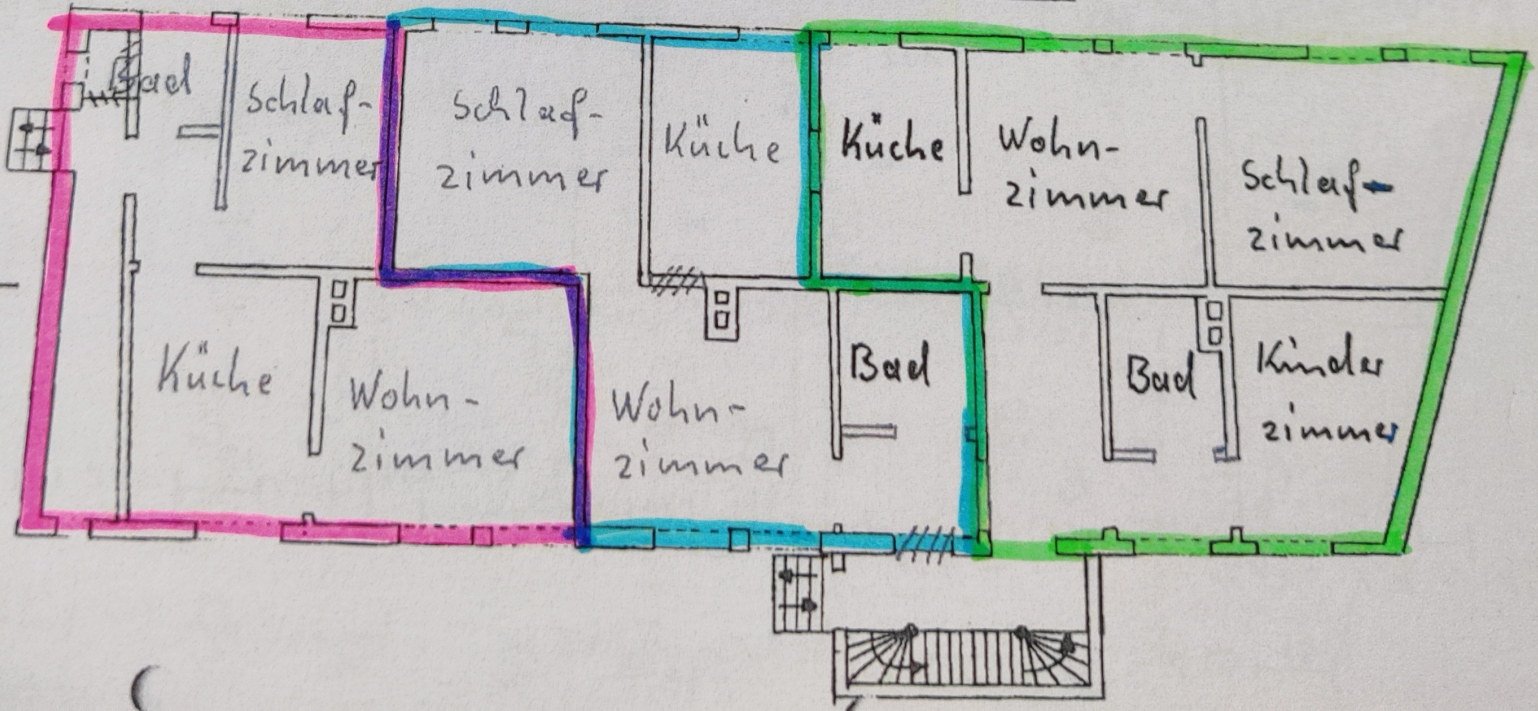 Bad
Schlaf-
zimmer
Schlaf-
zimmer
Küche
Küche
Wohn-
zimmer
Schlaf-
zimmer
Küche
Wohn-
zimmer
Wohn-
zimmer
Bad
Bad
Kinder
zimmer